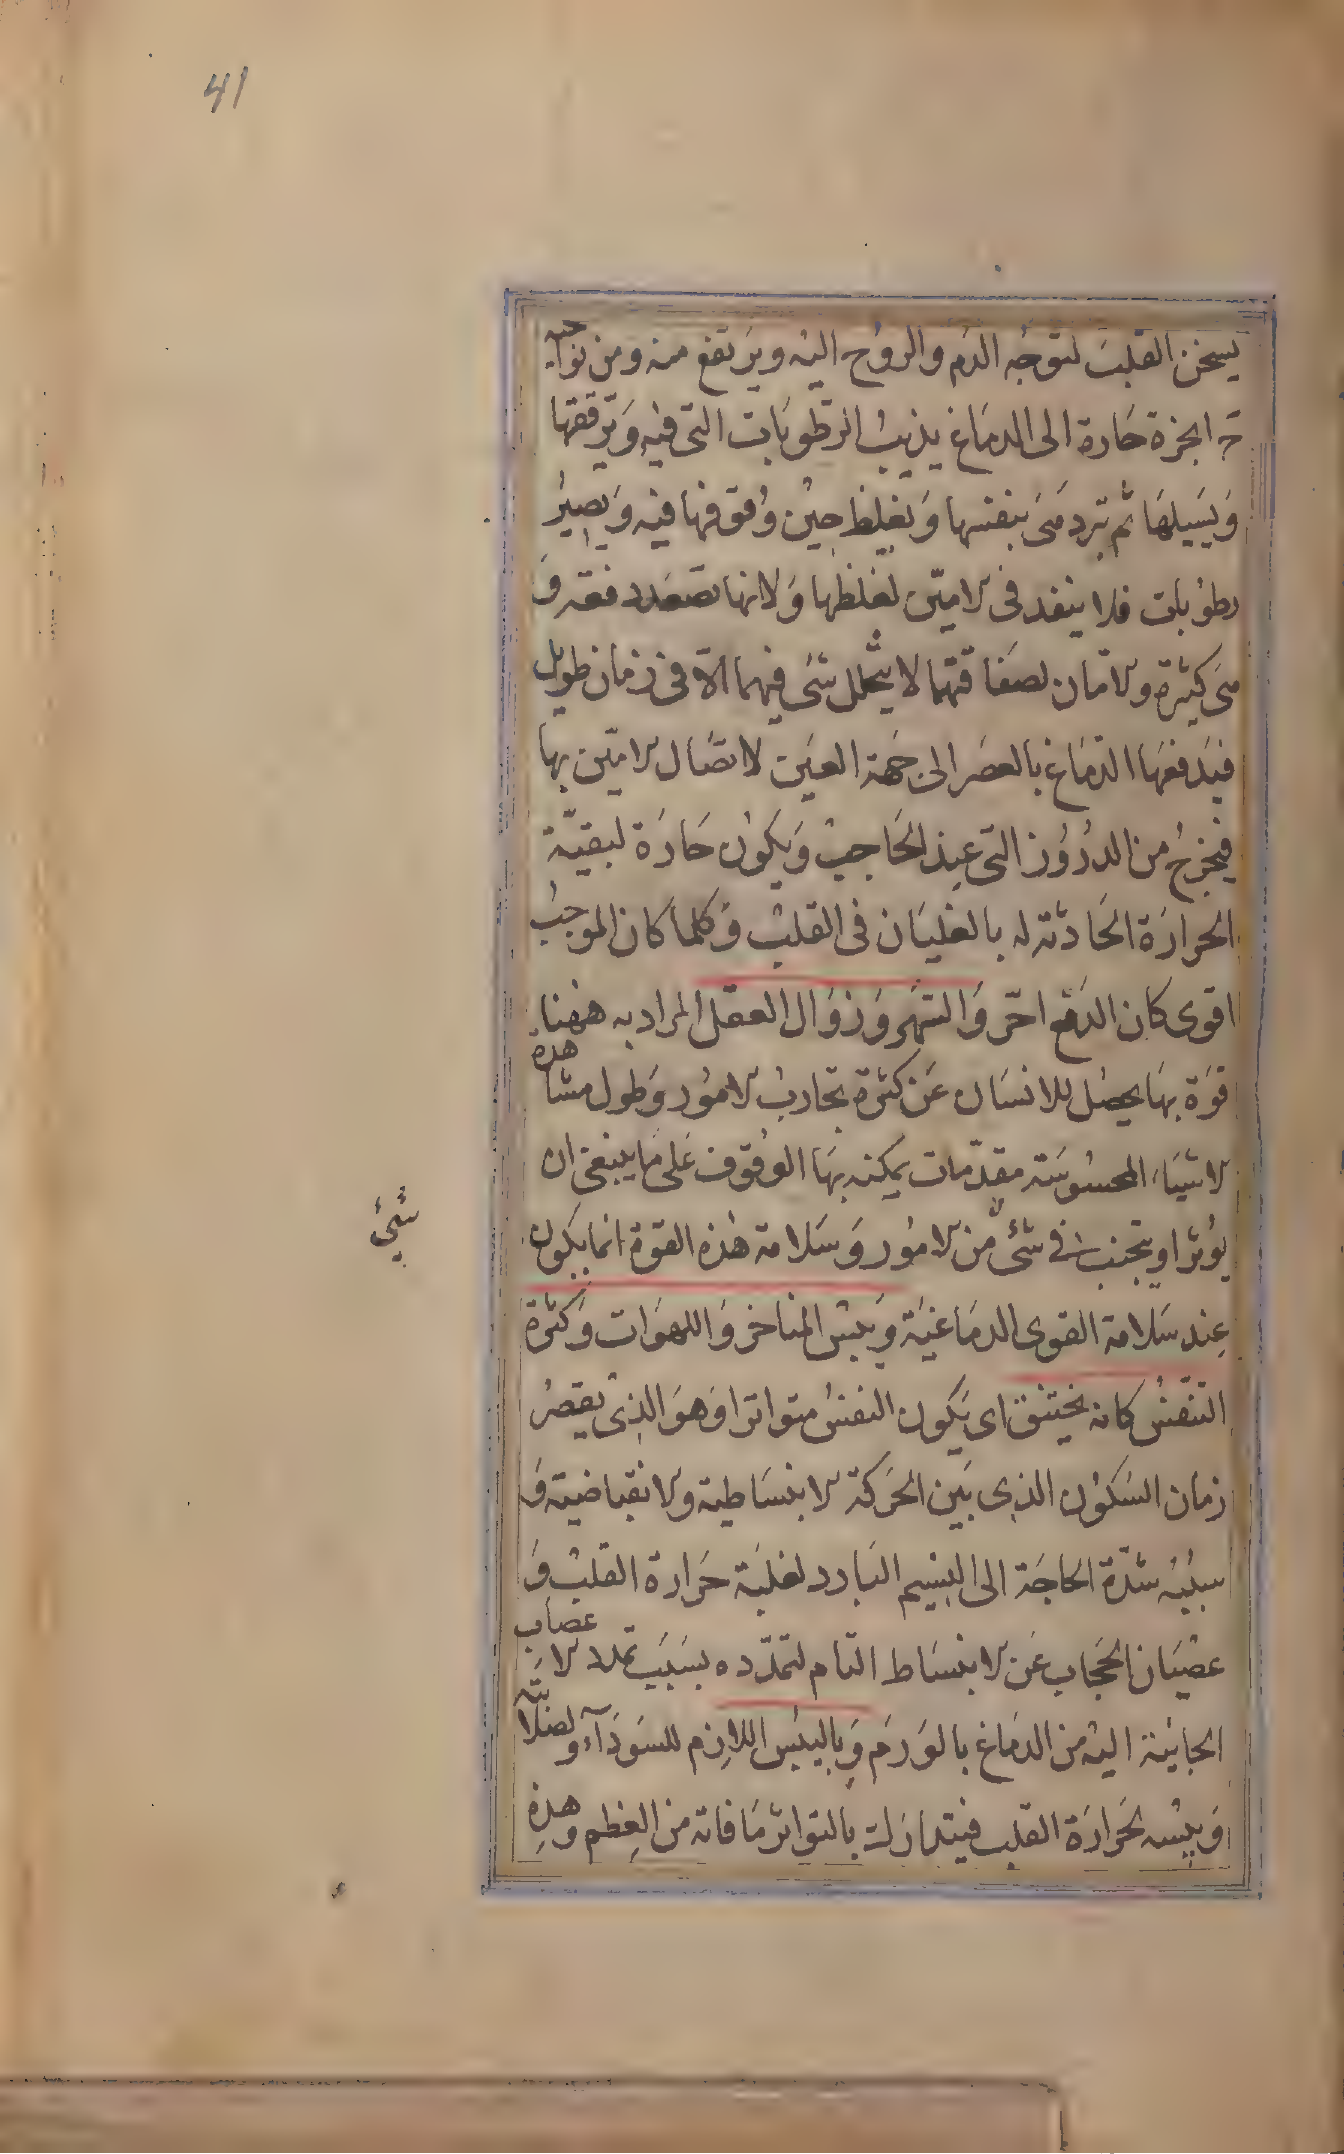 41
يسخن القلب لتوجه الدم والروح اليه ويرتفع منه ومن نواحيه
ابخرة حارة الى الدماغ يذيب الرطوبات التى فيه ويرققها
ويسيلها ثم تبرد هى بنفسها ويغلظ حين وقوفها فيه ويصير
رطوبات فلا ينفد فى الامين لغلظها ولانها تصعد دفعة و
هى كثيرة والامان لصفاقتهما لا يتحلل شى فيهما الا فى زمان طويل
فيدفعها الدماغ بالعصر الى جهة العين لاتصال الامين بها
فيخرج من الدروز التى عند الحاجب ويكون حارة لبقية
الحرارة الحادثة له بالغليان فى القلب وكلما كان الموجب
اقوى كان الدمع احر والسهر وزوال العقل المراد به ههنا
قوة بها يحصل للانسان عن كثرة تجارب الامور وطول مشاهدة
الاشياء المحسوسة مقدمات يمكنه بها الوقوف على ما ينبغى ان
يؤثر او يتجنب فى شئ من الامور وسلامة هذه القوة انما يكون
شئ
عند سلامة القوى الدماغية ويبس المناخر واللهوات وكثرة
التنفس كانه يختنق اى يكون النفس متواترا وهو الذى يقصر
زمان السكون الذى بين الحركة الانبساطية والانقباضية و
سببه شدة الحاجة الى النسيم البارد لغلبة حرارة القلب و
عصيان الحجاب عن الانبساط التام لتمدده بسبب تملا الاعصاب
الجائية اليه من الدماغ بالورم وباليبس اللازم للسوداء ولصلابته
ويبسه لحرارة القلب فيتدارك بالتواتر ما فاته من العظم وهذه